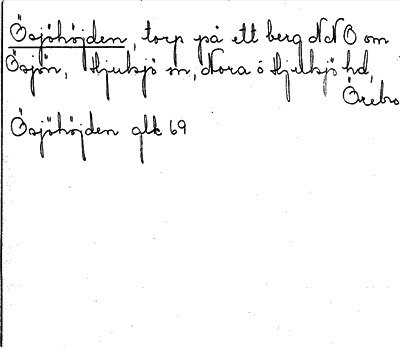 Ösjöhöjden, torp på ett berg NNO om
Ösjön, Hjulsjö sn, Nora o Hjulsjö hd,
Örebro
Ösjöhöjden glk 69